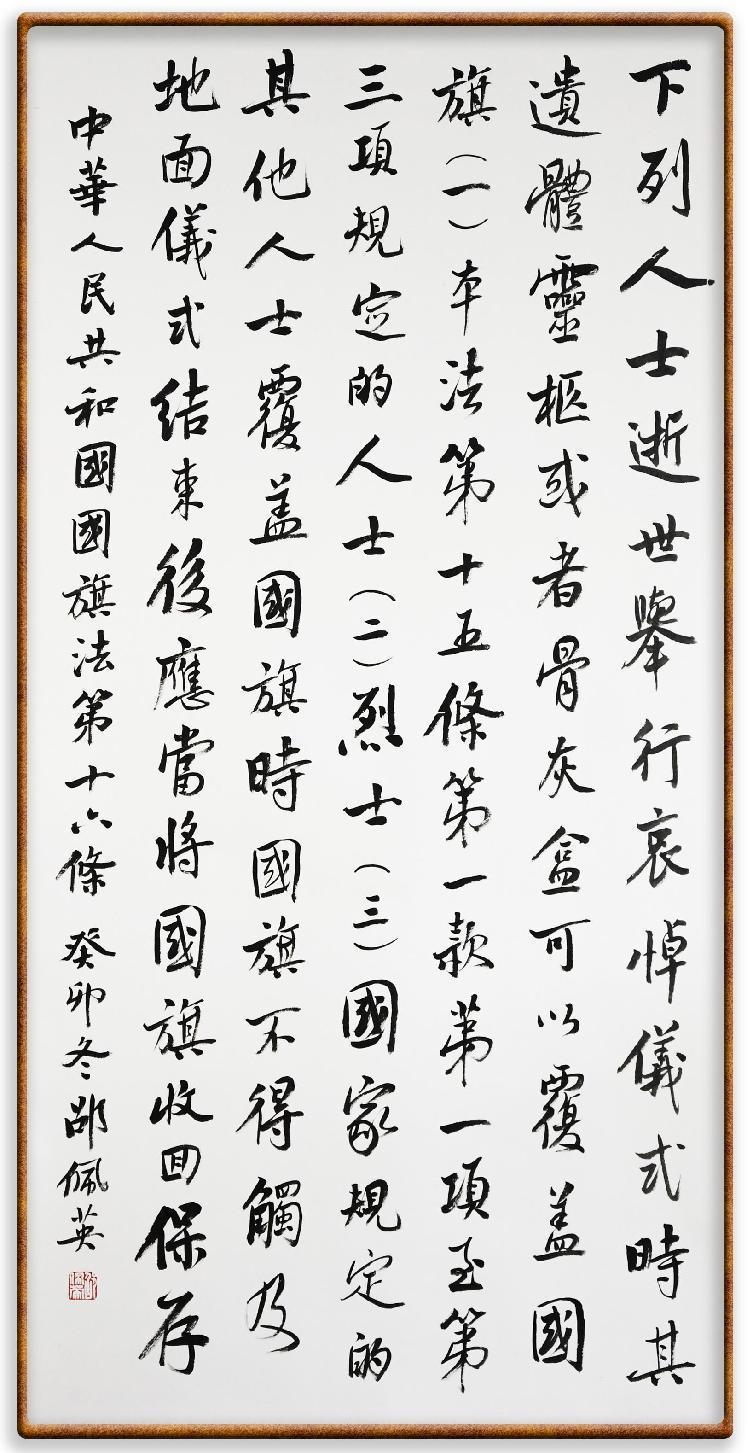 下列人士逝世舉行哀悼儀式時其
遺體靈柩或者骨灰盒可以覆蓋國
旗（一）本法第十五條第一款第一項至第
三項規定的人士（二）烈士（三）國家規定的
其他人士覆蓋國旗時國旗不得觸及
地面儀式结束後應當將國旗收回保存
中華人民共和國國旗法第十六條 癸卯冬 邵佩英